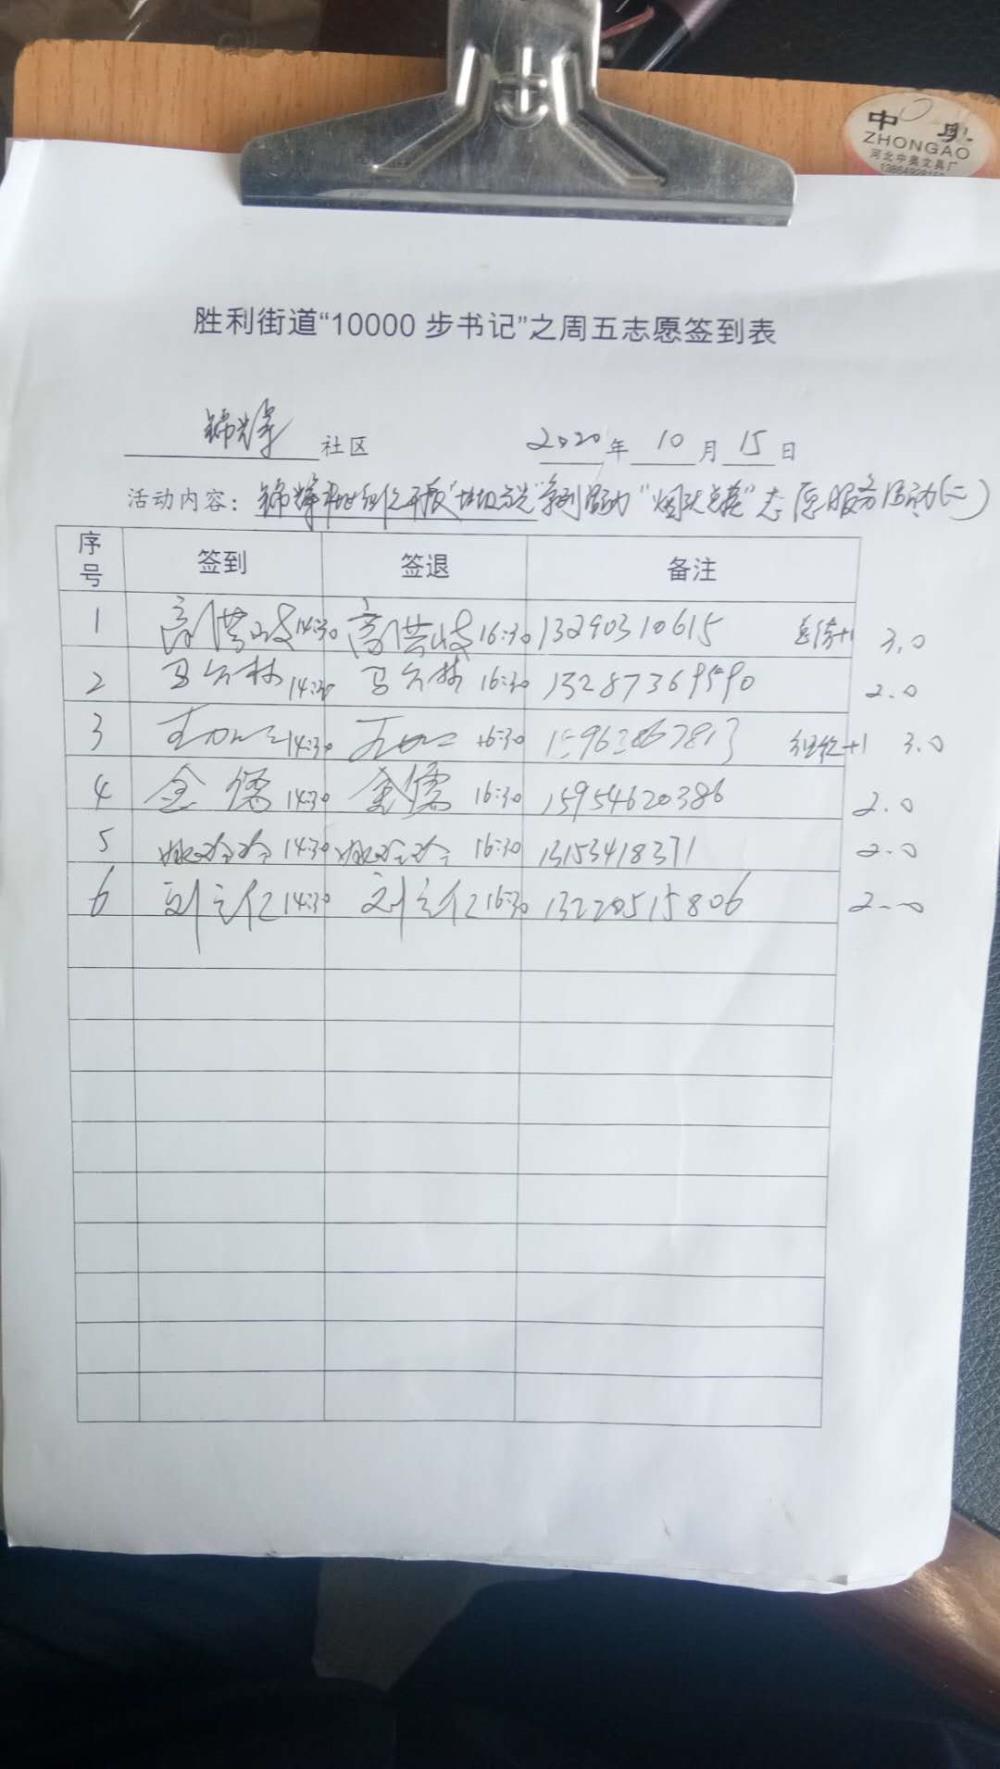 中奥
ZHONGAO
河北中奥文具厂
胜利街道“10000 步书记”之周五志愿签到表
锦辉 社区 2020 年 10 月 15 日
活动内容： 锦辉 "烟头兑换" 志愿服务活动(二)
序号 签到 签退 备注
1 高洪岐 14:30 高洪岐 16:30 13290310615 宣传+1 3.0
2 14:30 16:30 13287369590 2.0
3 14:30 16:30 15963067813 组织+1 3.0
4 金儒 14:30 金儒 16:30 15954620386 2.0
5 姚玲玲 14:30 姚玲玲 16:30 13153418371 2.0
6 刘立仁 14:30 刘立仁 16:30 13220515806 2.0